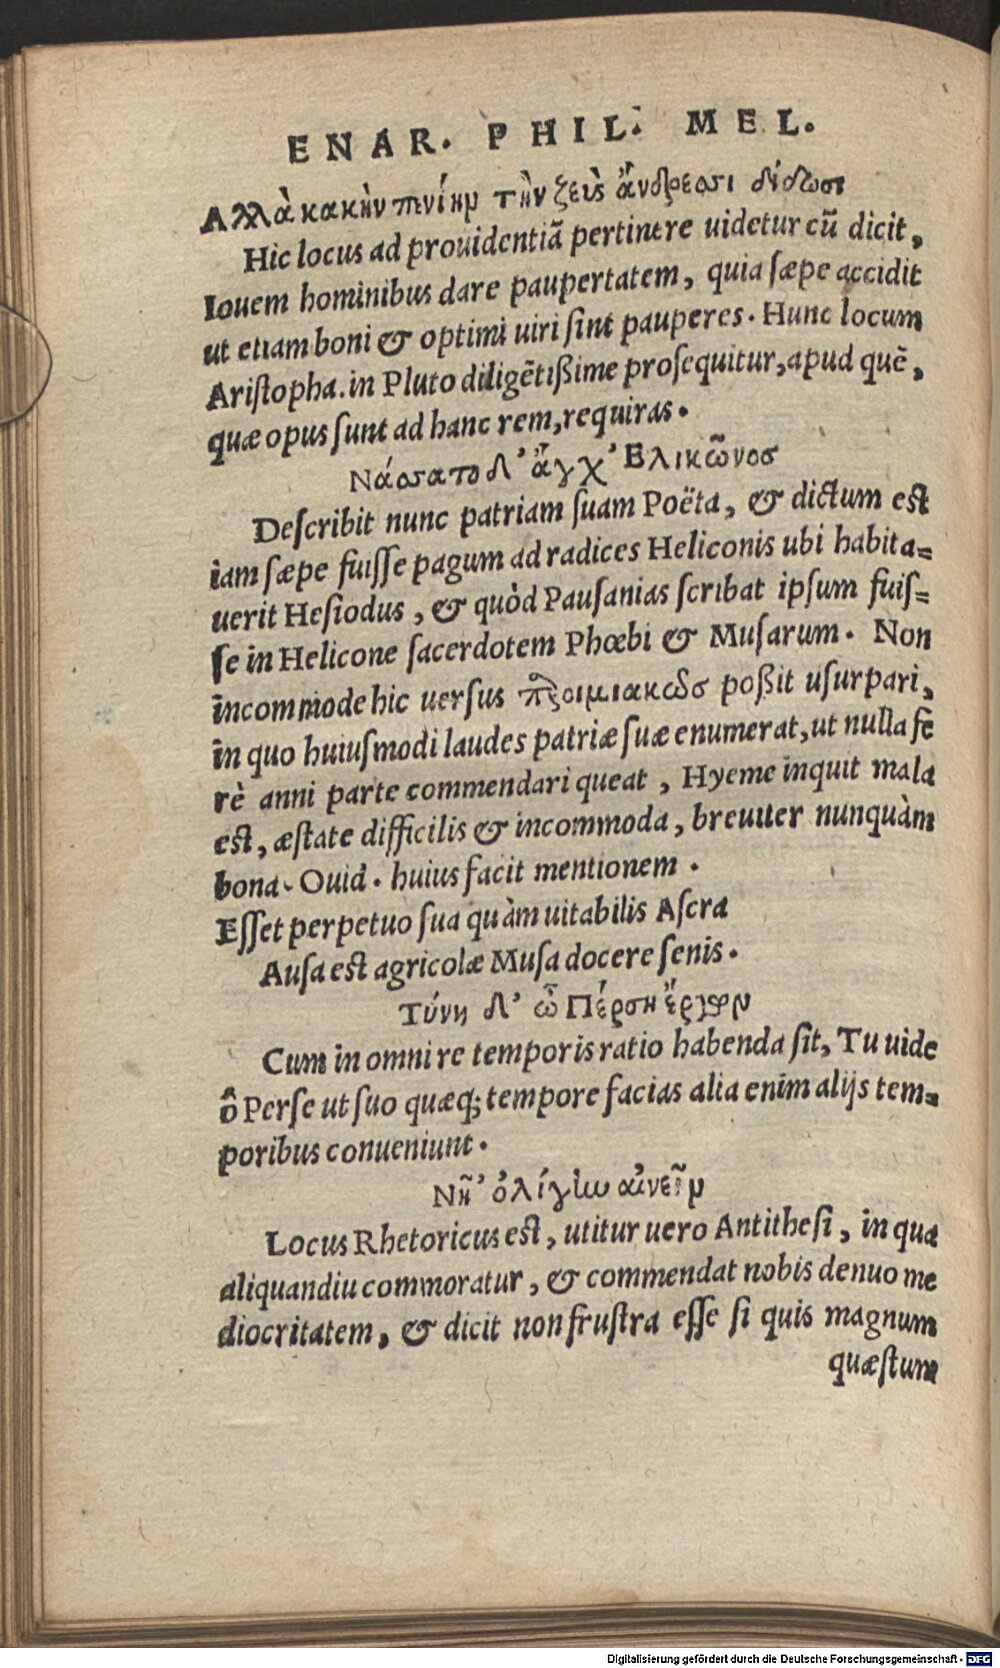 ENAR. PHIL. MEL.
Αλλὰ κακὴν πενίην τὴν ζεὺς ἄνδρεσσι δίδωσι
Hic locus ad prouidentiã pertinere uidetur cũ dicit,
Iouem hominibus dare paupertatem, quia sæpe accidit
ut etiam boni & optimi uiri sint pauperes. Hunc locum
Aristopha. in Pluto diligẽtißime prosequitur, apud quẽ,
quæ opus sunt ad hanc rem, requiras.
Νάσσατο δ' ἄγχ' Ελικῶνοσ
Describit nunc patriam suam Poëta, & dictum est
iam sæpe fuisse pagum ad radices Heliconis ubi habita=
uerit Hesiodus, & quòd Pausanias scribat ipsum fuis=
se in Helicone sacerdotem Phœbi & Musarum. Non
incommode hic uersus προιμιακῶσ poßit usurpari,
in quo huiusmodi laudes patriæ suæ enumerat, ut nulla fe
rè anni parte commendari queat, Hyeme inquit mala
est, æstate difficilis & incommoda, breuiter nunquàm
bona. Ouid. huius facit mentionem.
Esset perpetuo sua quàm uitabilis Ascra
Ausa est agricolæ Musa docere senis.
Τύνη δ' ὦ Πέρση ἔργων
Cum in omni re temporis ratio habenda sit, Tu uide
ô Perse ut suo quæq; tempore facias alia enim alijs tem=
poribus conueniunt.
Νῆ' ὀλίγην αἰνεῖν
Locus Rhetoricus est, utitur uero Antithesi, in qua
aliquandiu commoratur, & commendat nobis denuo me
diocritatem, & dicit non frustra esse si quis magnum
quæstum
Digitalisierung gefördert durch die Deutsche Forschungsgemeinschaft - DFG